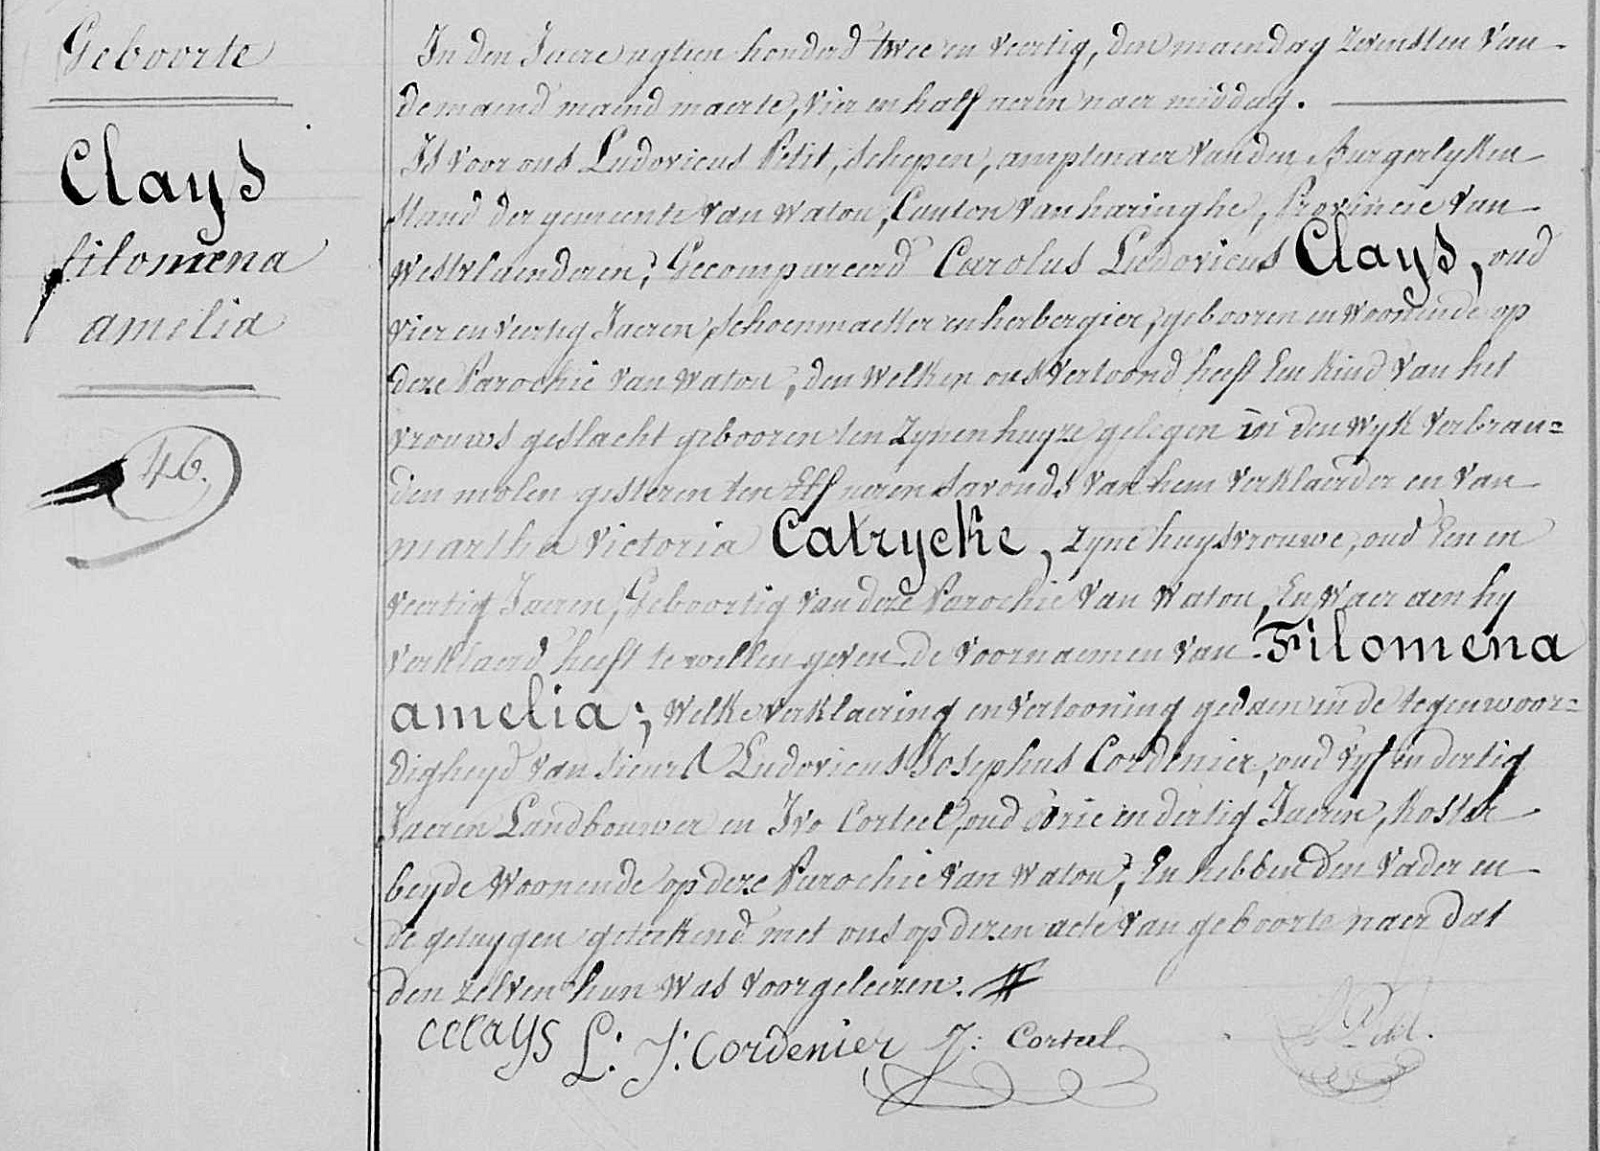 Geboorte
Clays
filomena
amelia
46.
In den Jaere agtien honderd twee en veertig, den maendag zevensten van
de maend maend maerte, vier en half uren naer middag.
Is voor ons Ludovicus Petit, schepen, amptenaer van den Burgerlyken
stand der gemeente van watou, Canton van haringhe, Provincie van
westvlaenderen; Gecompareerd Carolus Ludovicus Clays, oud
vier en veertig Jaeren, schoenmaeker en herbergier, gebooren en woonende op
deze Parochie van watou, den welken ons vertoond heeft Een kind van het
vrouws geslacht gebooren ten zynen huyze gelegen in den wyk verbran=
den molen gisteren ten Elf uren savonds van hem verklaerder en van
martha victoria Catrycke, zyne huysvrouwe, oud Een en
veertig Jaeren, Geboortig van deze Parochie van watou, En waer aen hy
verklaerd heeft te willen geven de voornaemen van Filomena
amelia; welke verklaering en vertooning gedaen in de tegenwoor=
digheyd van sieurs Ludovicus Josephus Cordenier, oud vyf en dertig
Jaeren Landbouwer en Ivo Corteel, oud drie en dertig Jaeren, koster
beyde woonende op deze Parochie van watou, En hebben den vader en
de getuygen geteekend met ons op dezen acte van geboorte naer dat
den zelven hun was voorgeleezen.
cclays L: J: Cordenier J: Corteel